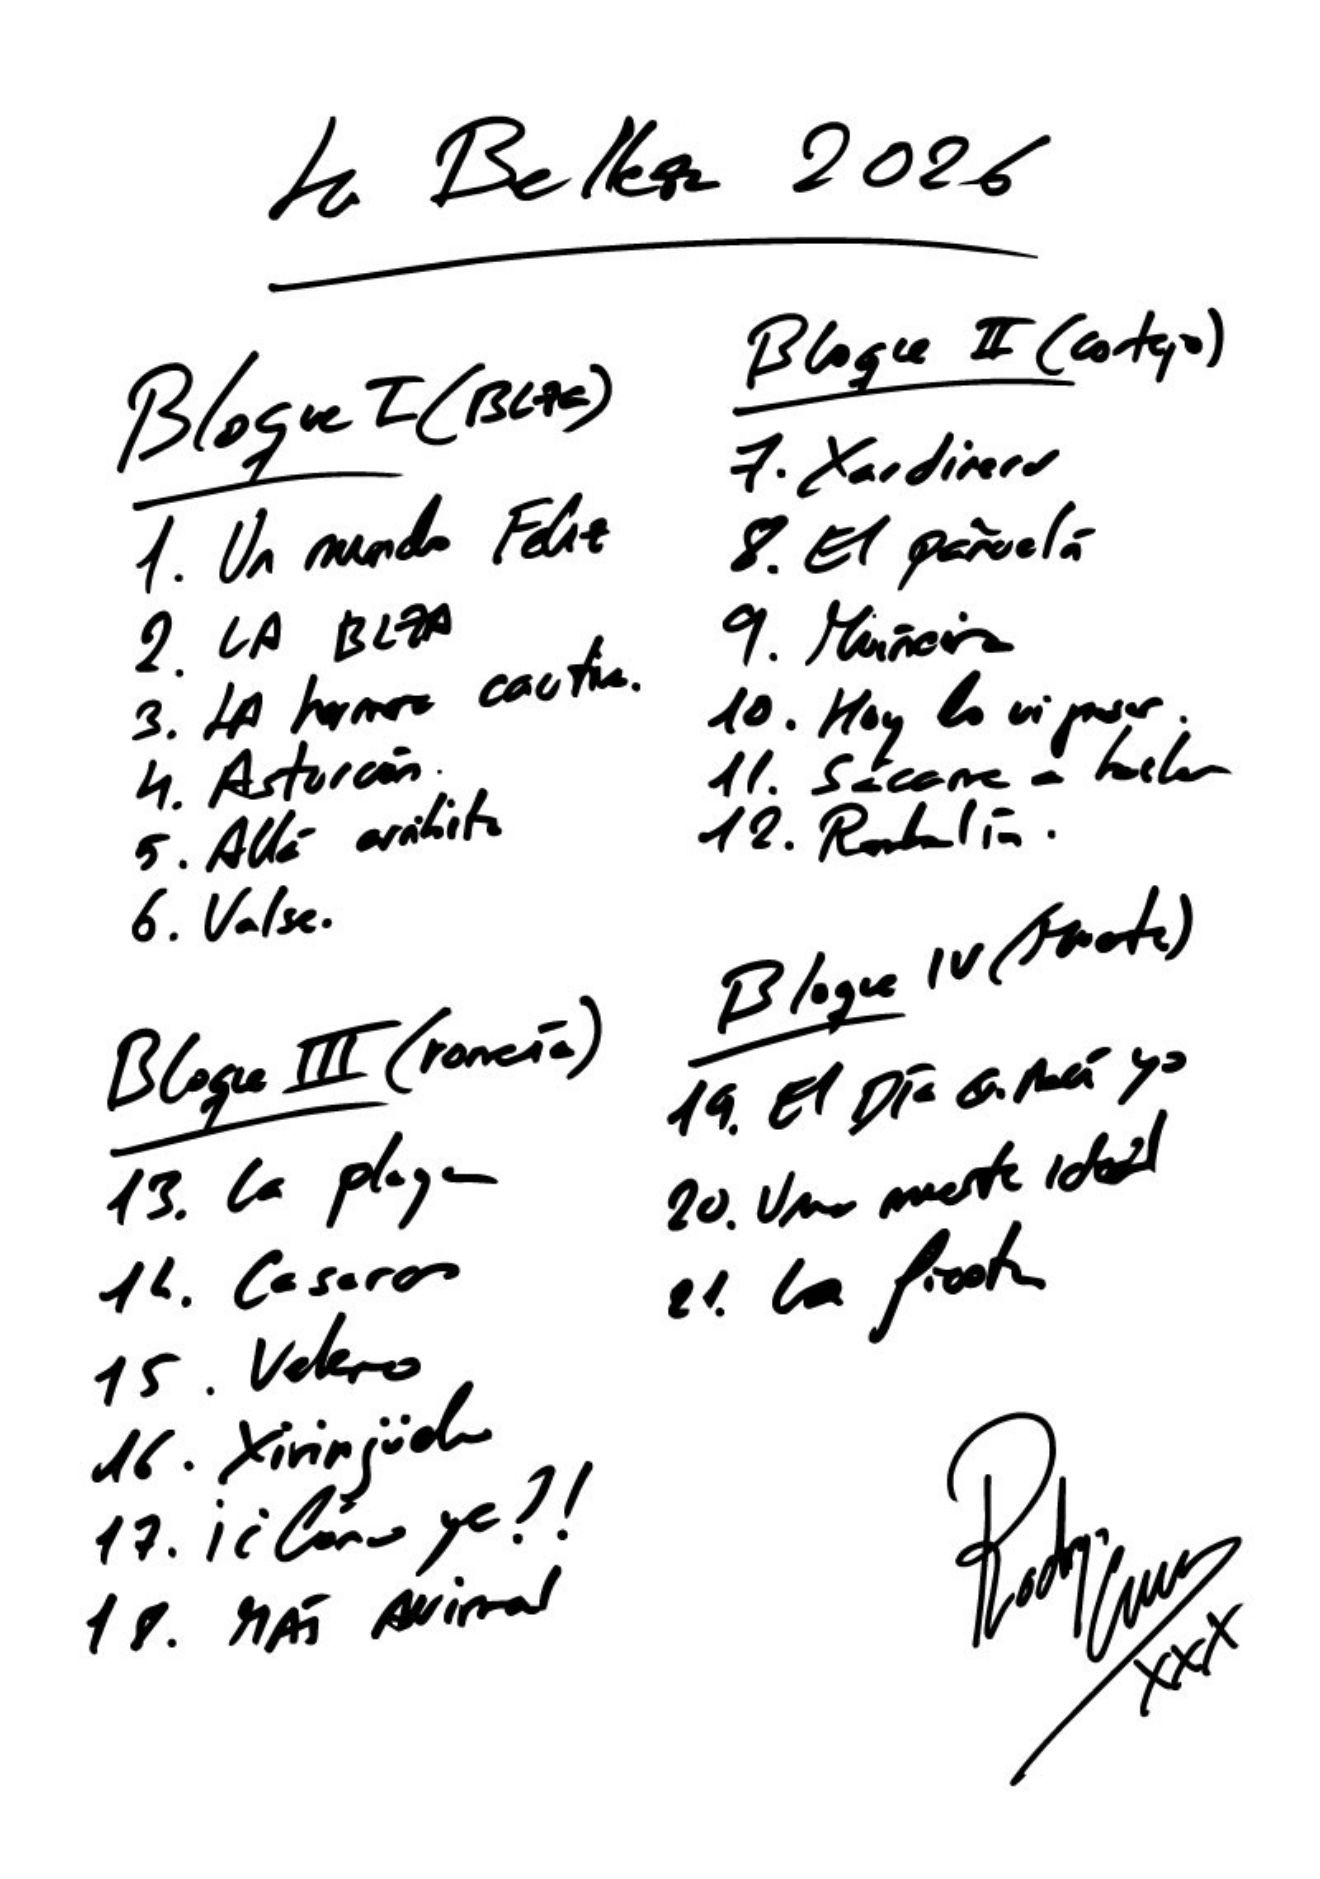 La Belleza 2026
Bloque I (BLZA)
1. Un mundo Feliz
2. LA BLZA
3. LA hermosa cautiv.
4. Asturcón.
5. Allá arribita
6. Valse.
Bloque II (Cortejo)
7. Xardineru
8. El pañuelín
9. Muñeira
10. Hoy lo vi pasar.
11. Sácame a bailar
12. Rambalín.
Bloque III (romería)
13. La playa
14. Casares
15. Velero
16. Xiringüelu
17. ¡¿Cómo ye?!
18. MÁS ANimal
Bloque IV (Muerte)
19. El Día que nací yo
20. Una muerte ideal
21. La fiesta
Rodrigo Cuevas
XXX